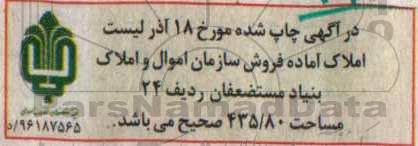 در آگهی چاپ شده مورخ ۱۸ آذر لیست
املاک آماده فروش سازمان اموال و املاک
بنیاد مستضعفان ردیف ۲۴
مساحت ۴۳۵/۸۰ صحیح می باشد.
۹۶۱۸۷۵۶۵/د
ParsNamadData